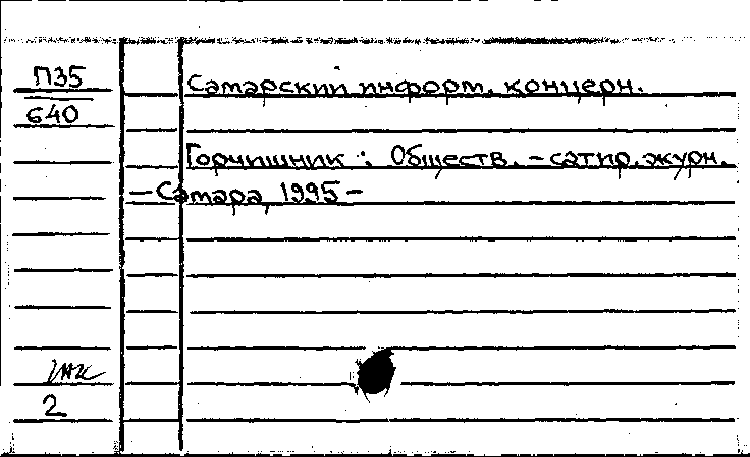 П35
640
Самарский информ. концерн.
Горчишник : Обществ. - сатир. журн.
- Самара, 1995 -
2